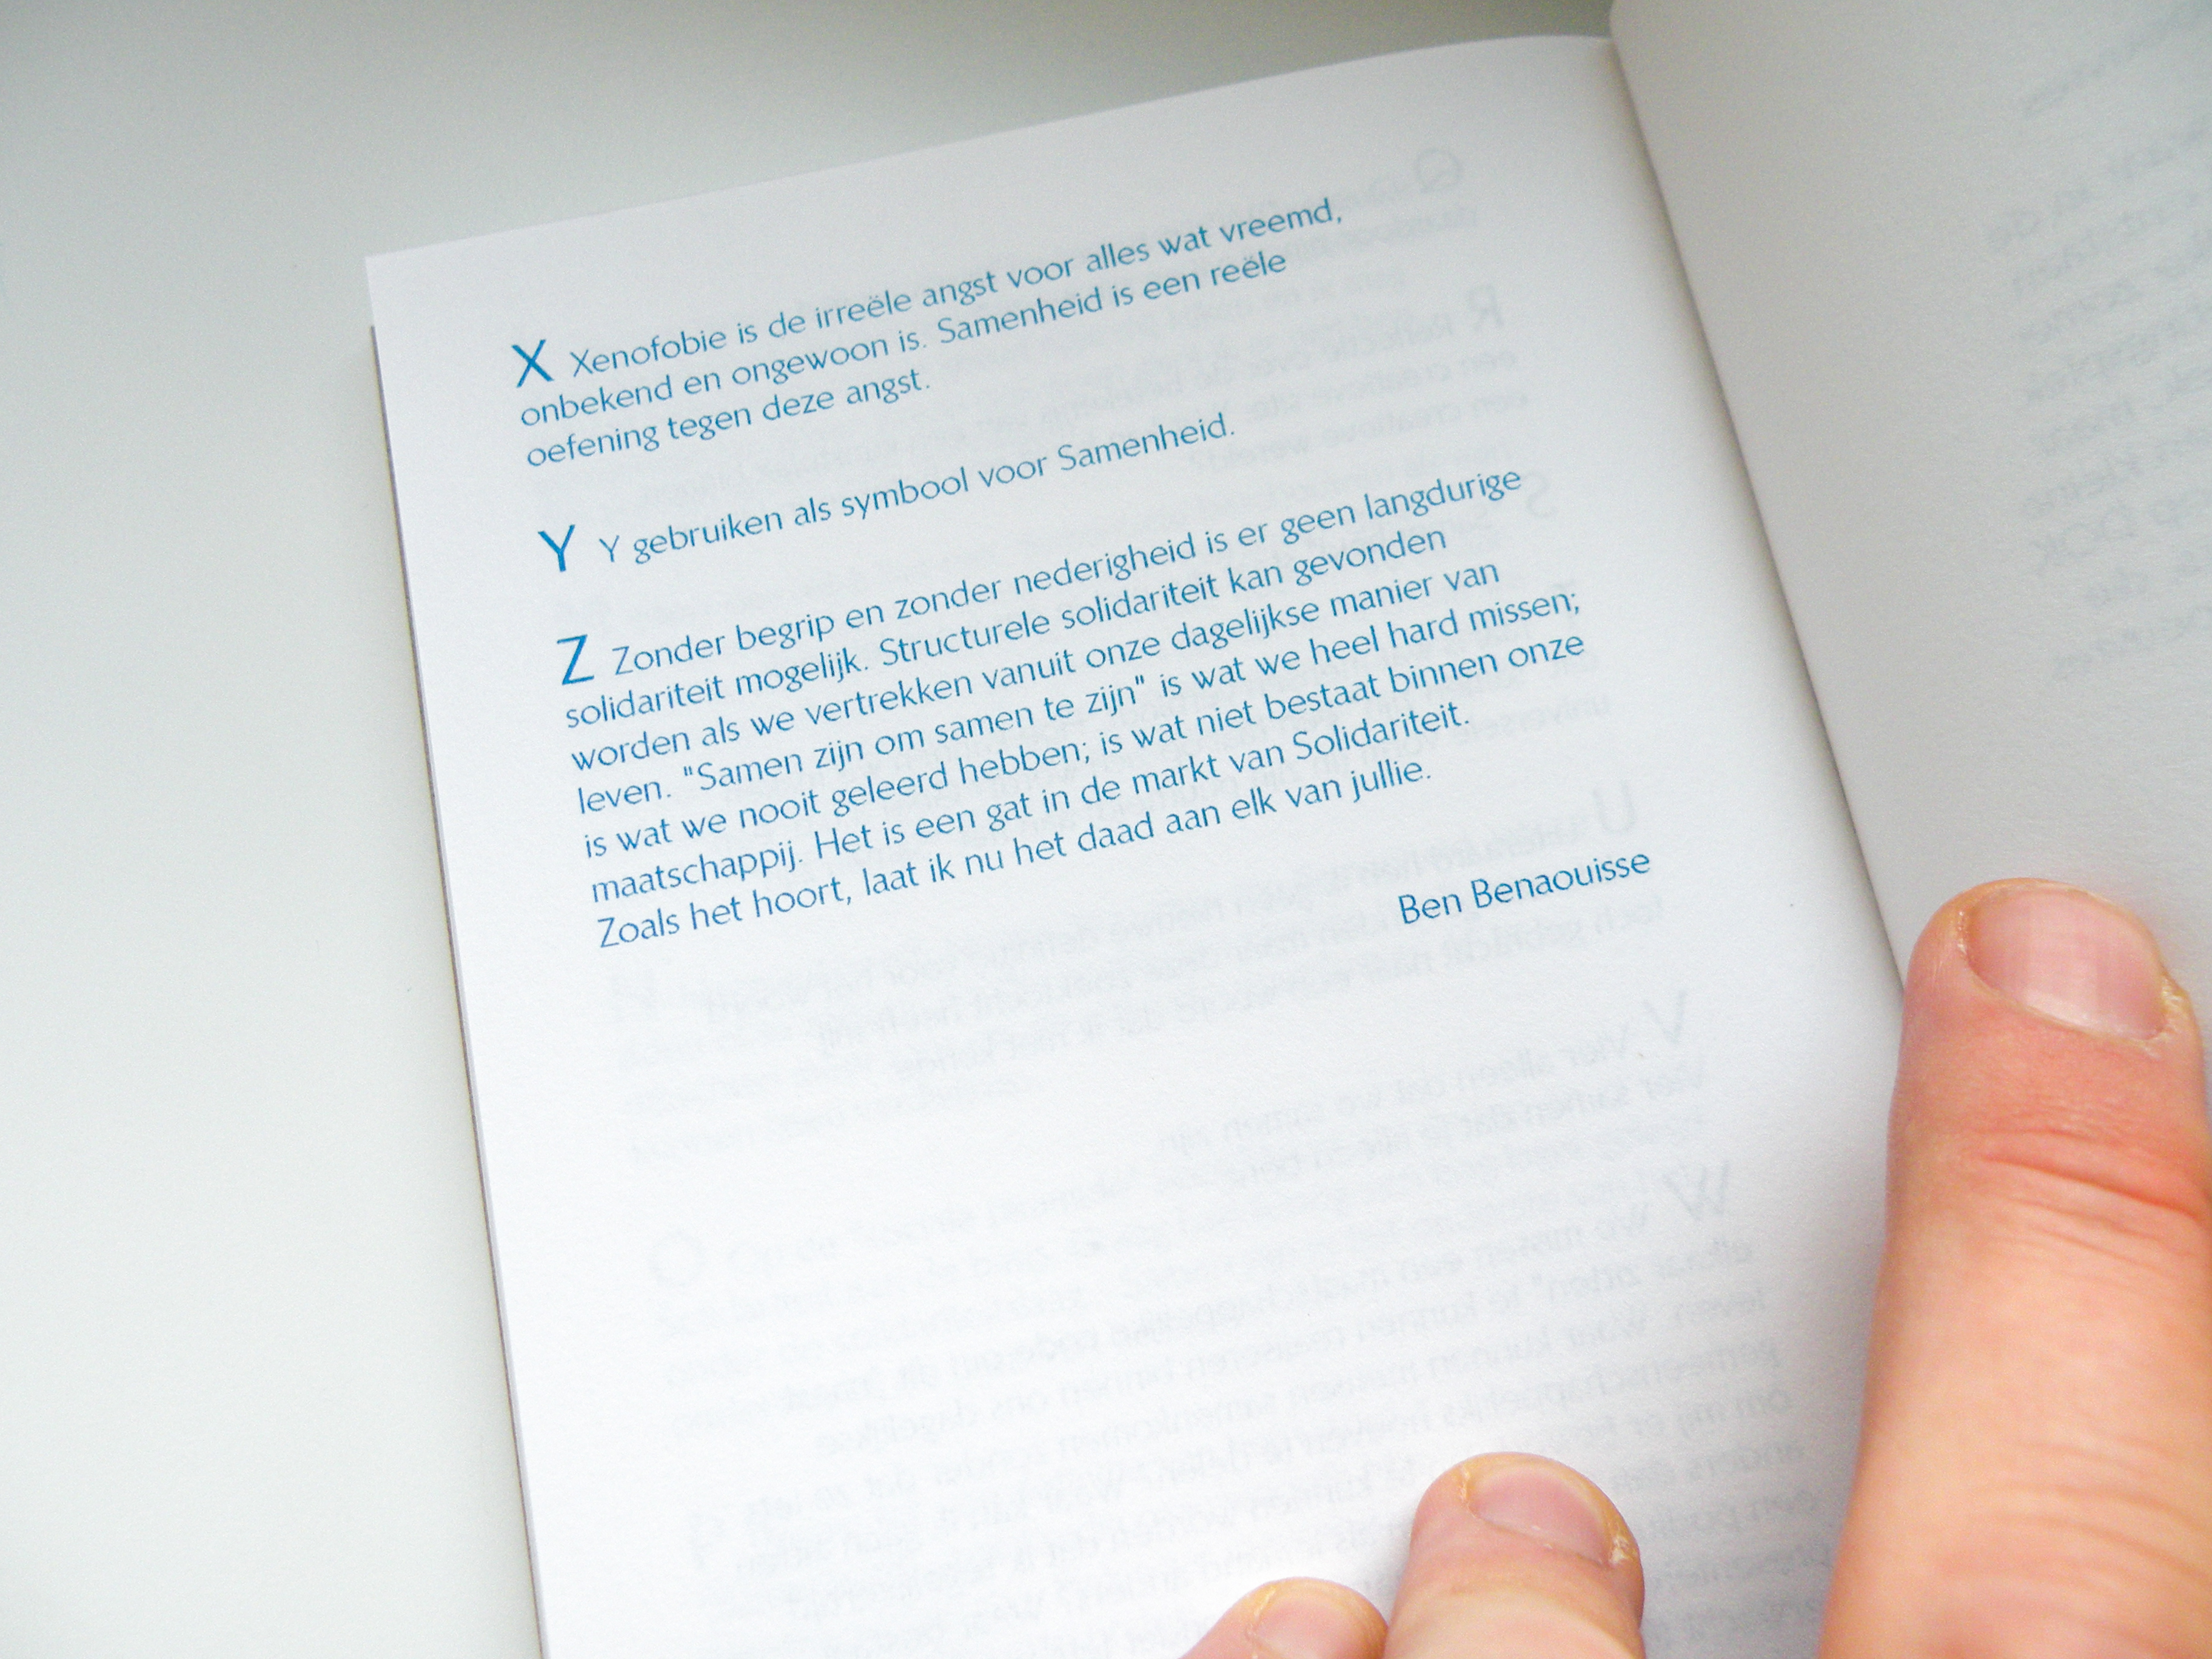 X Xenofobie is de irreële angst voor alles wat vreemd,
onbekend en ongewoon is. Samenheid is een reële
oefening tegen deze angst.
Y Y gebruiken als symbool voor Samenheid.
Z Zonder begrip en zonder nederigheid is er geen langdurige
solidariteit mogelijk. Structurele solidariteit kan gevonden
worden als we vertrekken vanuit onze dagelijkse manier van
leven. "Samen zijn om samen te zijn" is wat we heel hard missen;
is wat we nooit geleerd hebben; is wat niet bestaat binnen onze
maatschappij. Het is een gat in de markt van Solidariteit.
Zoals het hoort, laat ik nu het daad aan elk van jullie.
Ben Benaouisse